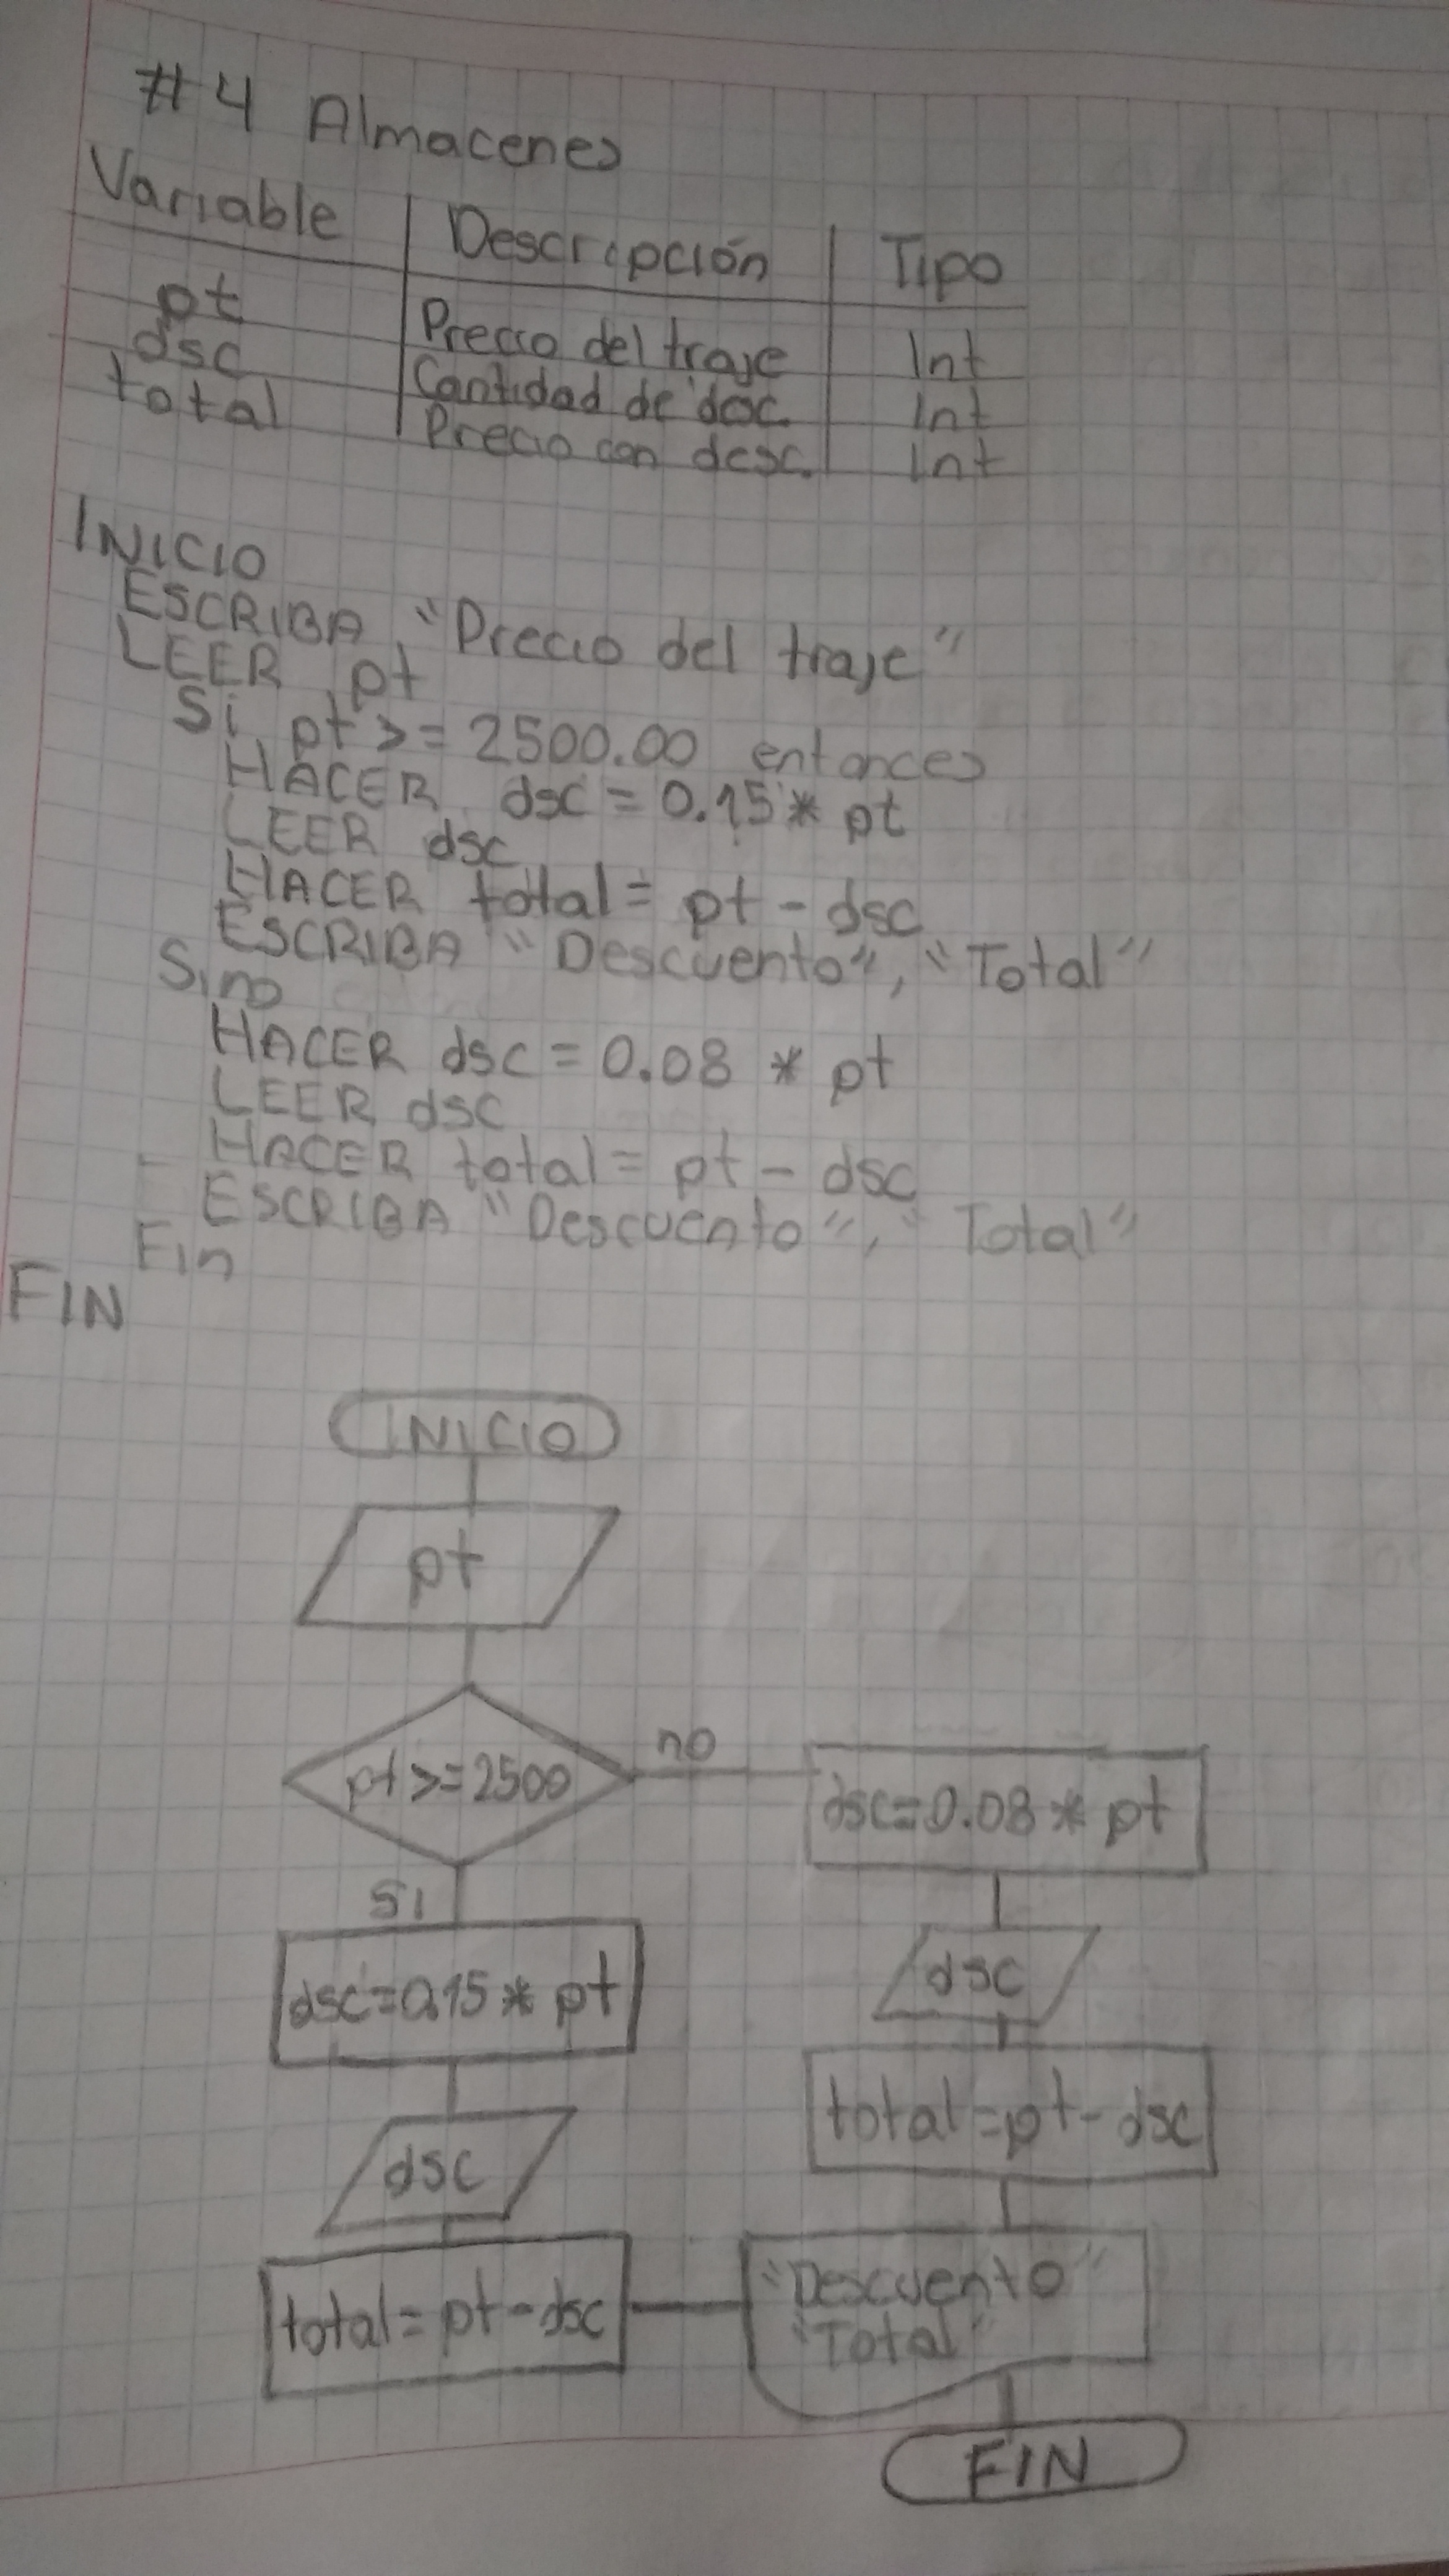 #4 Almacenes
Variable Descripción Tipo
pt Precio del traje Int
dsc Cantidad de desc. Int
total Precio con desc. Int
INICIO
ESCRIBA "Precio del traje"
LEER pt
Si pt >= 2500.00 entonces
HACER dsc = 0.15 * pt
LEER dsc
HACER total = pt - dsc
ESCRIBA "Descuento", "Total"
Sino
HACER dsc = 0.08 * pt
LEER dsc
HACER total = pt - dsc
ESCRIBA "Descuento", "Total"
Fin
FIN
INICIO
pt
pt >= 2500
no
dsc=0.08 * pt
Si
dsc=0.15 * pt
dsc
dsc
total=pt-dsc
total= pt-dsc
"Descuento"
"Total"
FIN